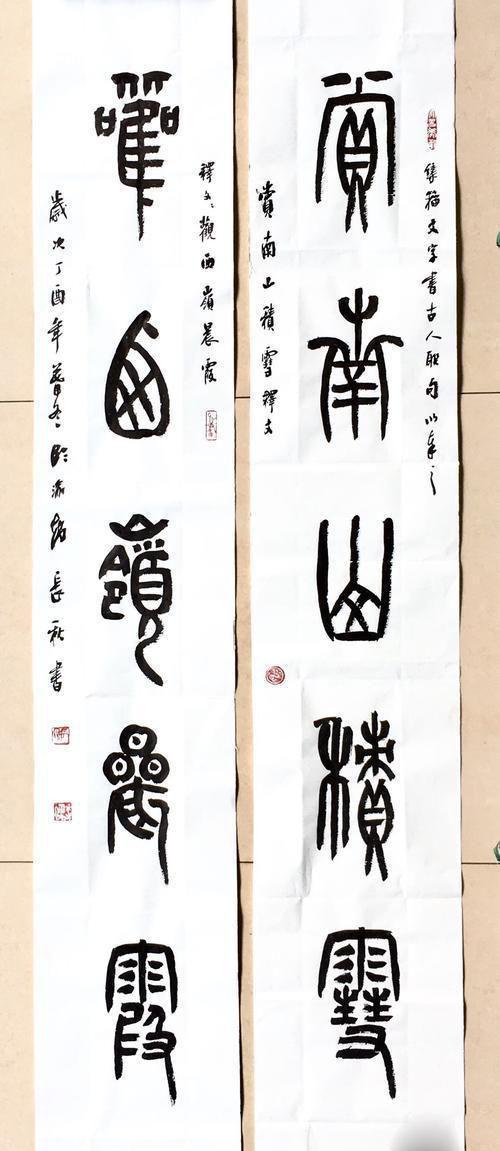 集籀文字書古人聯句以奉之
賞南山積雪
賞南山積雪釋文
釋文觀西嶺晨霞
觀西嶺晨霞
歲次丁酉年暮冬長秋書